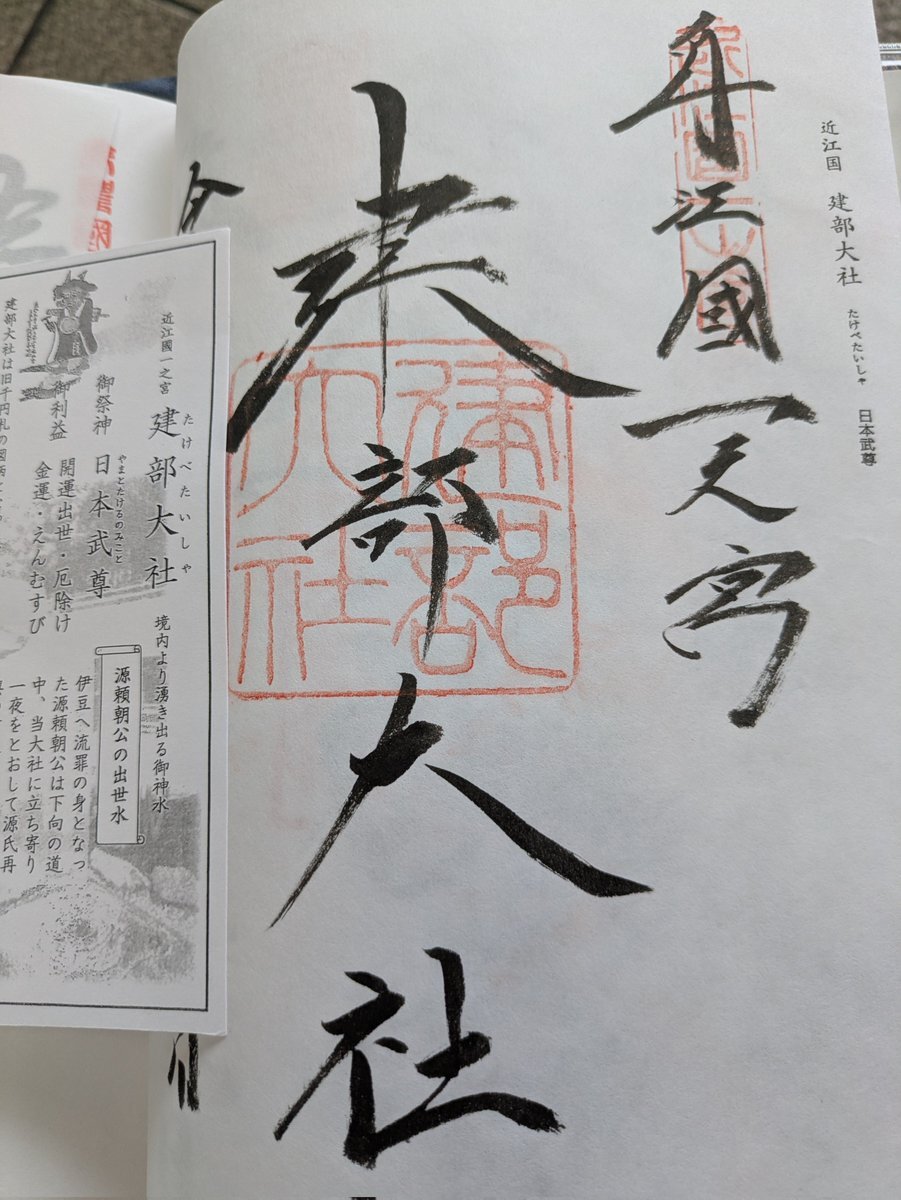 近江国 建部大社 たけべたいしゃ 日本武尊
近江國一之宮
建部大社
建部大社
近江國一之宮
建部大社
たけべたいしゃ
御祭神 日本武尊
やまとたけるのみこと
御利益 開運出世・厄除け
金運・えんむすび
建部大社は旧千円札の図柄
境内より湧き出る御神水
源頼朝公の出世水
伊豆へ流罪の身となっ
た源頼朝公は下向の道
中、当大社に立ち寄り
一夜をとおして源氏再